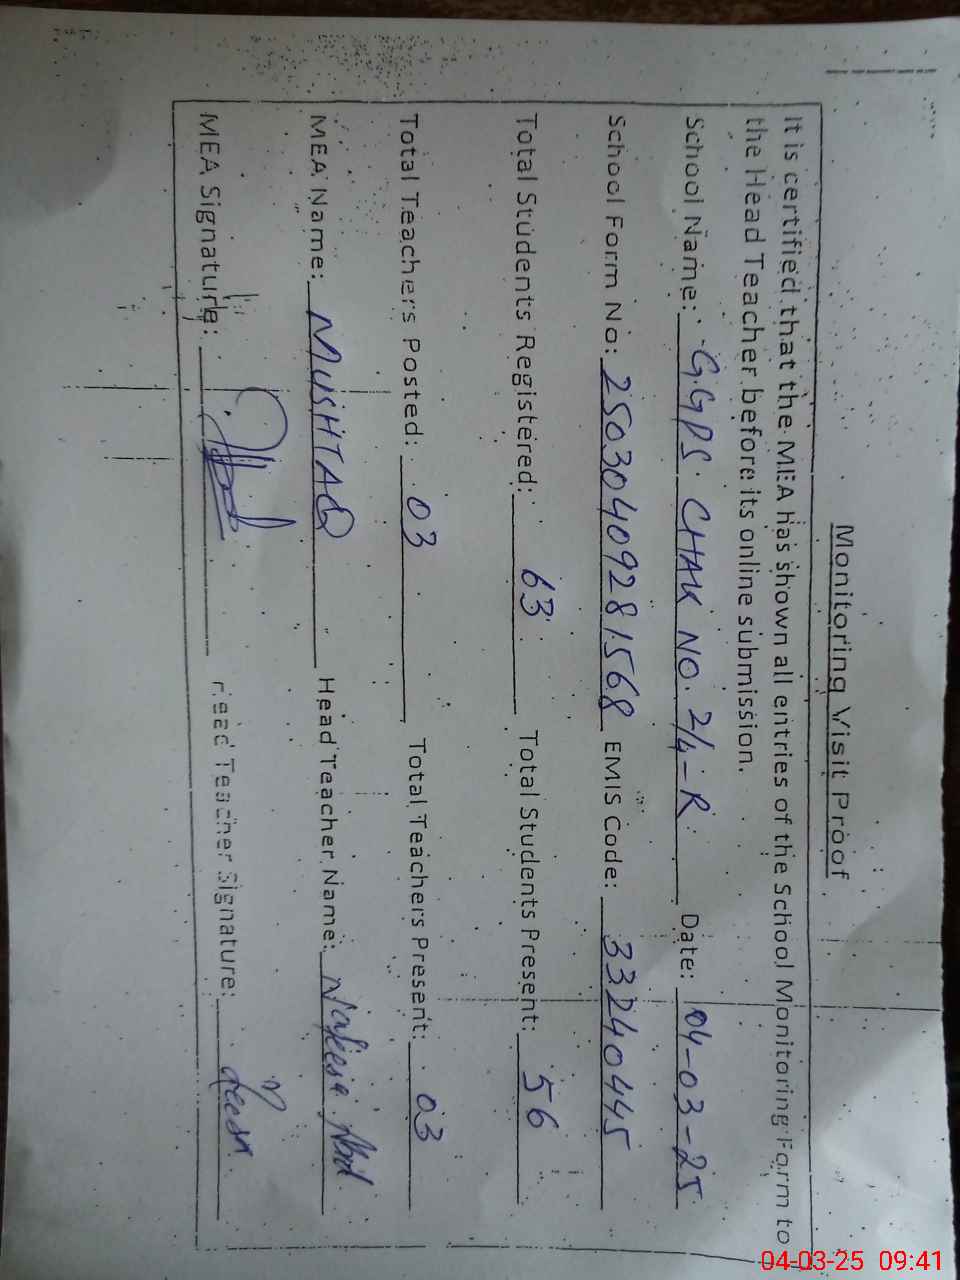 Monitoring Visit Proof
It is certified that the MEA has shown all entries of the School Monitoring Form to
the Head Teacher before its online submission.
School Name: GGPS CHAK NO. 2/4-R Date: 04-03-25
School Form No: 25030409281568 EMIS Code: 33240445
Total Students Registered: 63 Total Students Present: 56
Total Teachers Posted: 03 Total Teachers Present: 03
MEA Name: MUSHTAQ Head Teacher Name:
MEA Signature: Head Teacher Signature:
04-03-25 09:41